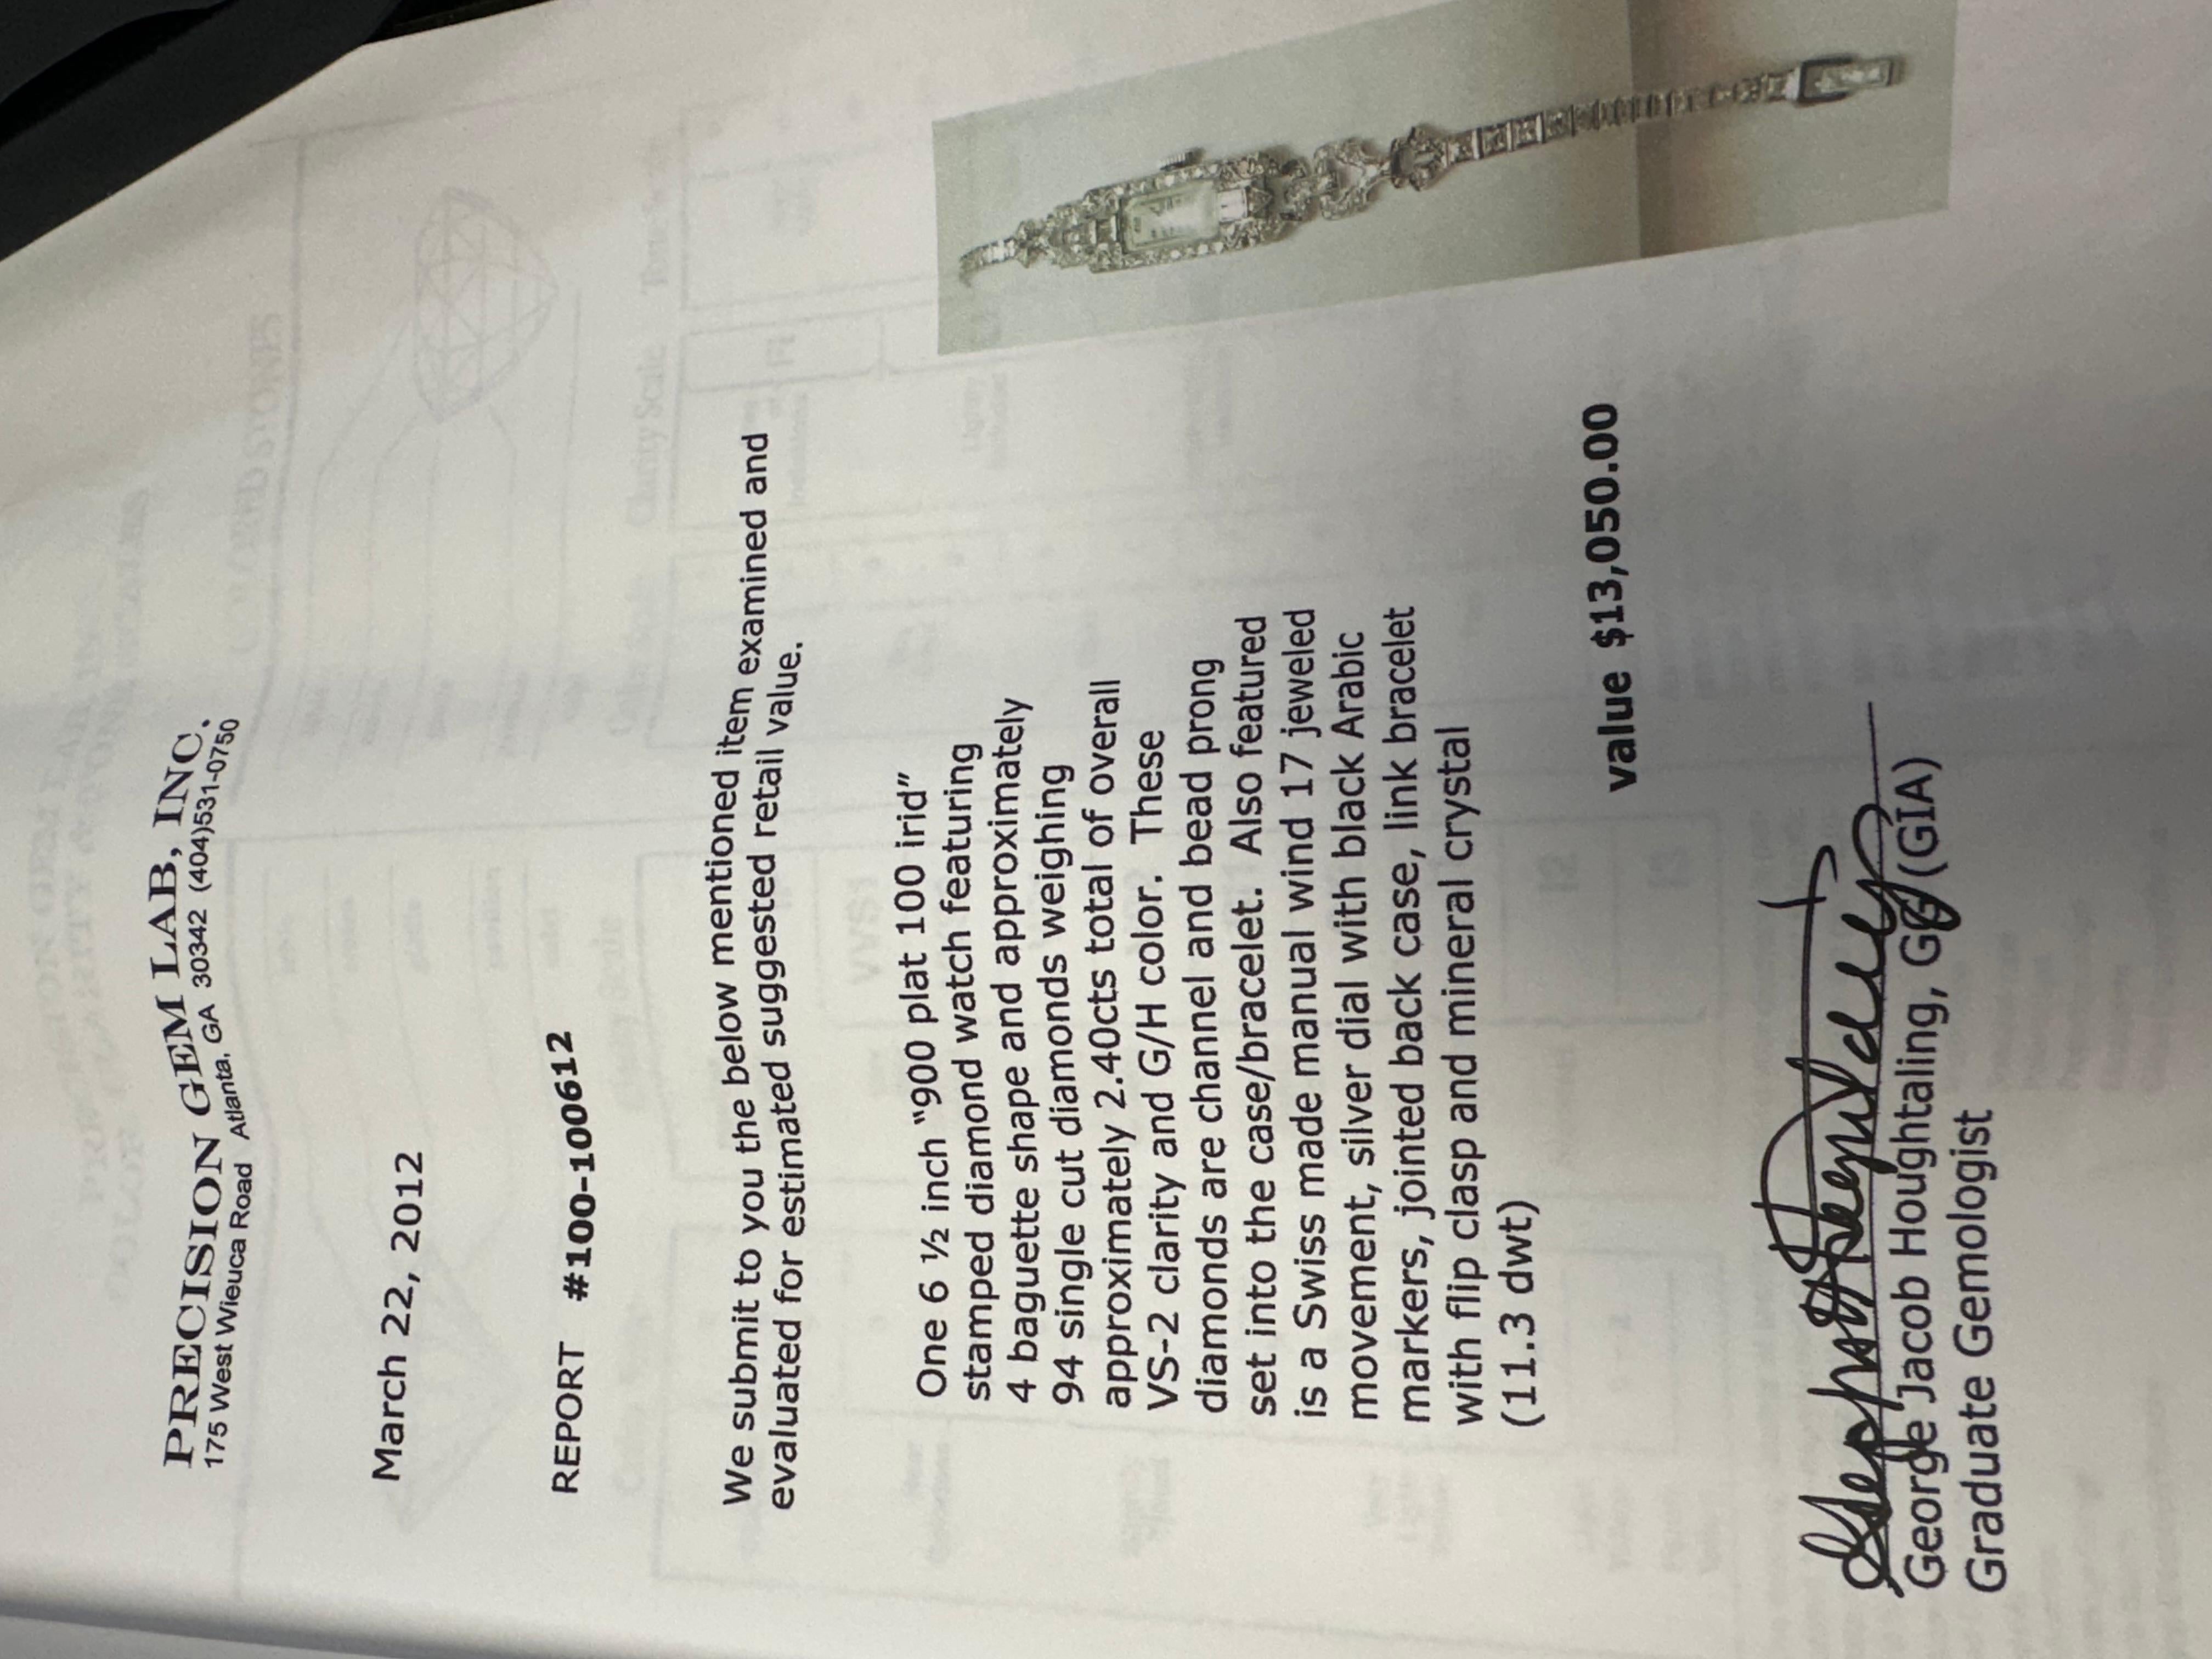 PRECISION GEM LAB, INC.
175 West Wieuca Road Atlanta, GA 30342 (404)531-0750
March 22, 2012
REPORT #100-100612
We submit to you the below mentioned item examined and
evaluated for estimated suggested retail value.
One 6 ½ inch "900 plat 100 irid"
stamped diamond watch featuring
4 baguette shape and approximately
94 single cut diamonds weighing
approximately 2.40cts total of overall
VS-2 clarity and G/H color. These
diamonds are channel and bead prong
set into the case/bracelet. Also featured
is a Swiss made manual wind 17 jeweled
movement, silver dial with black Arabic
markers, jointed back case, link bracelet
with flip clasp and mineral crystal
(11.3 dwt)
value $13,050.00
George Jacob Houghtaling, GG (GIA)
Graduate Gemologist